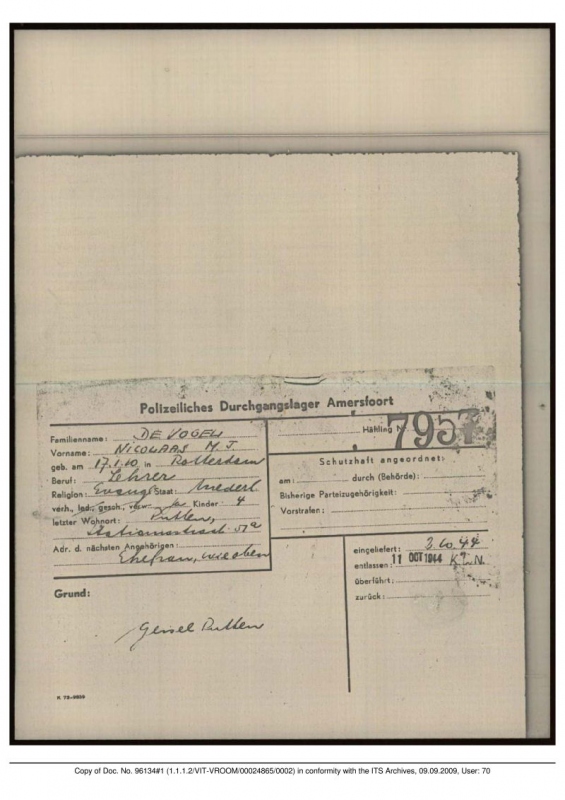 Polizeiliches Durchgangslager Amersfoort
Familienname: DE VOGEL
Vorname: NICOLAAS M. J.
geb. am 17.1.00 in Rotterdam
Beruf: Lehrer
Religion: Evang. Staat: Niederl.
verh., led., gesch., Kinder 4
letzter Wohnort: Putten,
Stationsstraat 57a
Adr. d. nächsten Angehörigen:
Ehefrau, wie oben
Häftling Nr. 7957
Schutzhaft angeordnet:
am: durch (Behörde):
Bisherige Parteizugehörigkeit:
Vorstrafen:
eingeliefert: 3.10.44
entlassen: 11 OCT 1944 K.L.N.
überführt:
zurück:
Grund:
Geisel Putten
Copy of Doc. No. 96134#1 (1.1.1.2/VIT-VROOM/00024865/0002) in conformity with the ITS Archives, 09.09.2009, User: 70